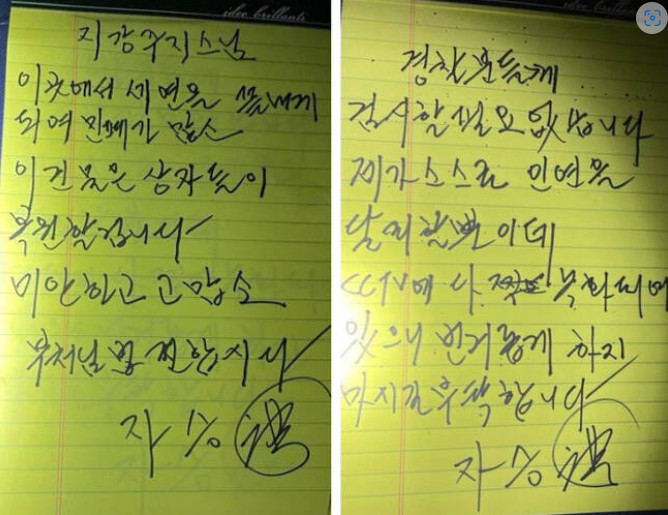 지강주지스님
이곳에서 세연을 끝내게
되여 민폐가 많소
이 건물은 상자들이
복원할 겁니다
미안하고 고맙소
부처님법 전합시다
자승
경찰분들께
검시할 필요 없습니다
제가 스스로 인연을
달리할 뿐이데
CCTV에 다 녹화되여
있으니 번거롭게 하지
마시길 부탁합니다
자승